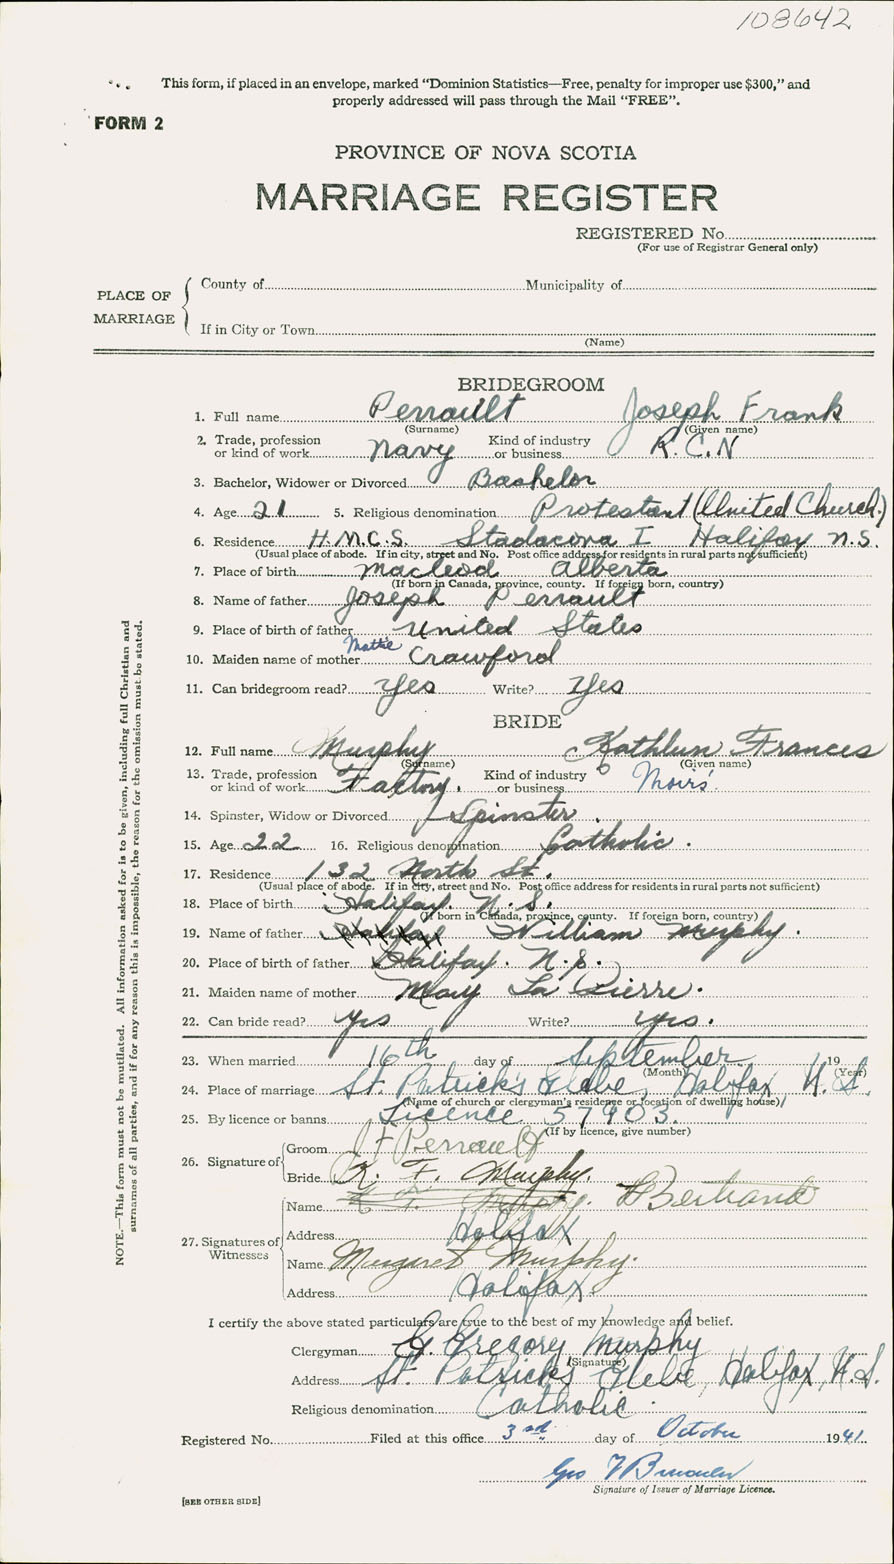 108642
This form, if placed in an envelope, marked “Dominion Statistics—Free, penalty for improper use $300,” and
properly addressed will pass through the Mail “FREE”.
FORM 2
PROVINCE OF NOVA SCOTIA
MARRIAGE REGISTER
REGISTERED No.
(For use of Registrar General only)
PLACE OF MARRIAGE
County of Municipality of
If in City or Town
(Name)
BRIDEGROOM
1. Full name Perrault Joseph Frank
(Surname) (Given name)
2. Trade, profession or kind of work Navy Kind of industry or business R.C.N
3. Bachelor, Widower or Divorced Bachelor
4. Age 21 5. Religious denomination Protestant (United Church)
6. Residence H.M.C.S. Stadacona I Halifax N.S.
(Usual place of abode. If in city, street and No. Post office address for residents in rural parts not sufficient)
7. Place of birth Macleod Alberta
(If born in Canada, province, county. If foreign born, country)
8. Name of father Joseph Perrault
9. Place of birth of father United States
10. Maiden name of mother Mattie Crawford
11. Can bridegroom read? Yes Write? Yes
BRIDE
12. Full name Murphy Kathleen Frances
(Surname) (Given name)
13. Trade, profession or kind of work Factory. Kind of industry or business Moirs'
14. Spinster, Widow or Divorced Spinster.
15. Age 22 16. Religious denomination Catholic.
17. Residence 132 North St.
(Usual place of abode. If in city, street and No. Post office address for residents in rural parts not sufficient)
18. Place of birth Halifax. N.S.
(If born in Canada, province, county. If foreign born, country)
19. Name of father Halifax William Murphy.
20. Place of birth of father Halifax. N.S.
21. Maiden name of mother Mary La Pierre.
22. Can bride read? Yes Write? yes.
23. When married 16th day of September 19
(Month) (Year)
24. Place of marriage St. Patrick's Glebe, Halifax N.S.
(Name of church or clergyman's residence or location of dwelling house)
25. By licence or banns Licence 57903.
(If by licence, give number)
26. Signature of
Groom J F Perrault
Bride K. F. Murphy.
27. Signatures of Witnesses
Name K F. Murphy. Bertrand
Address Halifax
Name Margaret Murphy.
Address Halifax
I certify the above stated particulars are true to the best of my knowledge and belief.
Clergyman G. Gregory Murphy
(Signature)
Address St. Patrick's Glebe, Halifax, N.S.
Religious denomination Catholic.
Registered No. Filed at this office 3rd day of October 1941.
Geo
Signature of Issuer of Marriage Licence.
[SEE OTHER SIDE]
NOTE.—This form must not be mutilated. All information asked for is to be given, including full Christian and
surnames of all parties, and if for any reason this is impossible, the reason for the omission must be stated.